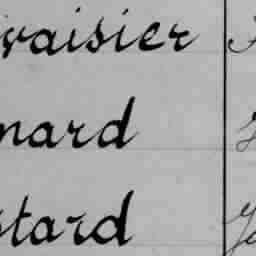 vaisier
nard
stard